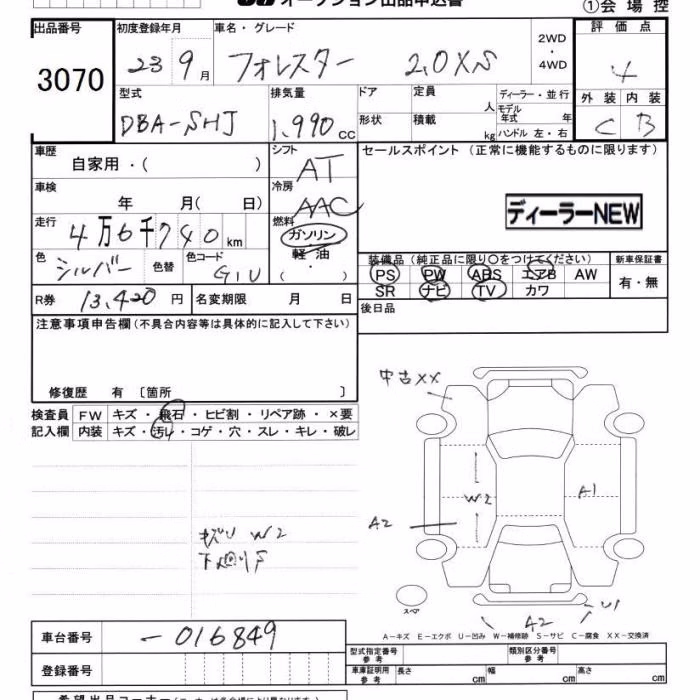 オークション出品申込書
①会場控
出品番号 初度登録年月 車名・グレード 2WD・4WD 評価点
3070 23 9月 フォレスター 2.0XS 4
型式 排気量 ドア 定員 人 ディーラー・並行 外装 内装
DBA-SHJ 1,990cc 形状 積載 kg モデル年式 年 ハンドル 左・右 C B
車歴 シフト セールスポイント (正常に機能するものに限ります)
自家用・( ) AT
車検 冷房
年 月( 日) AAC ディーラーNEW
走行 燃料
4万6千740km ガソリン・軽油・( )
色 色替 色コード 装備品(純正品に限り○をつけてください) 新車保証書
シルバー G1U PS PW ABS エアB AW 有・無
R券 13,420円 名変期限 月 日 SR ナビ TV カワ
後日品
注意事項申告欄(不具合内容等は具体的に記入して下さい)
修復歴 有 〔箇所 〕
中古XX
検査員 FW キズ・飛石・ヒビ割・リペア跡・×要
記入欄 内装 キズ・汚レ・コゲ・穴・スレ・キレ・破レ
W2 A1
A2
W2
下廻りS
スペア
A2 U1
A-キズ E-エクボ U-凹み W-補修跡 S-サビ C-腐食 XX-交換済
車台番号 -016849 型式指定番号 参考 類別区分番号 参考
登録番号 車庫証明用 参考 長さ cm 幅 cm 高さ cm
希望出品コーナー